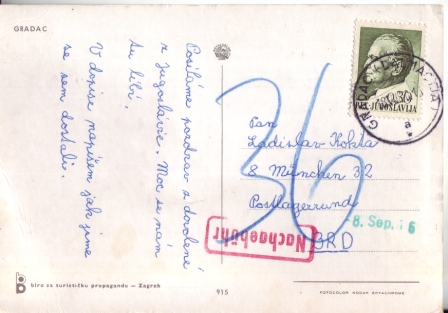 GRADAC
Posíláme pozdrav z dovolené
z Jugoslávie. Moc se nám
tu líbí.
V dopise napíšem jak jsme
se sem dostali.
0.30
JUGOSLAVIJA
GRADAC
a
Pan
Ladislav Kokta
8 München 32
Postlagerrund
BRD
36
8. Sep.
Nachgebühr
biro za turističku propagandu — Zagreb
915
FOTOCOLOR KODAK EKTACHROME